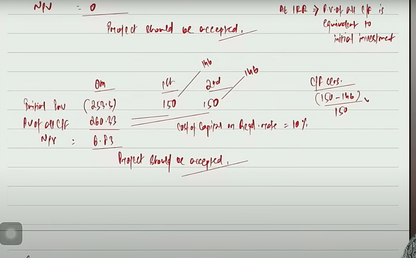 NPV : 0
Project should be accepted.
At IRR ⇒ PV of all C/F is
equivalent to
initial investment
146
0m 1st 2nd C/F
Initial Inv (253.5) 150 150 (150-146)
150
PV of all C/F 260.33 Cost of Capital or Reqd. rate = 10%
NPV : 6.83
Project should be accepted.